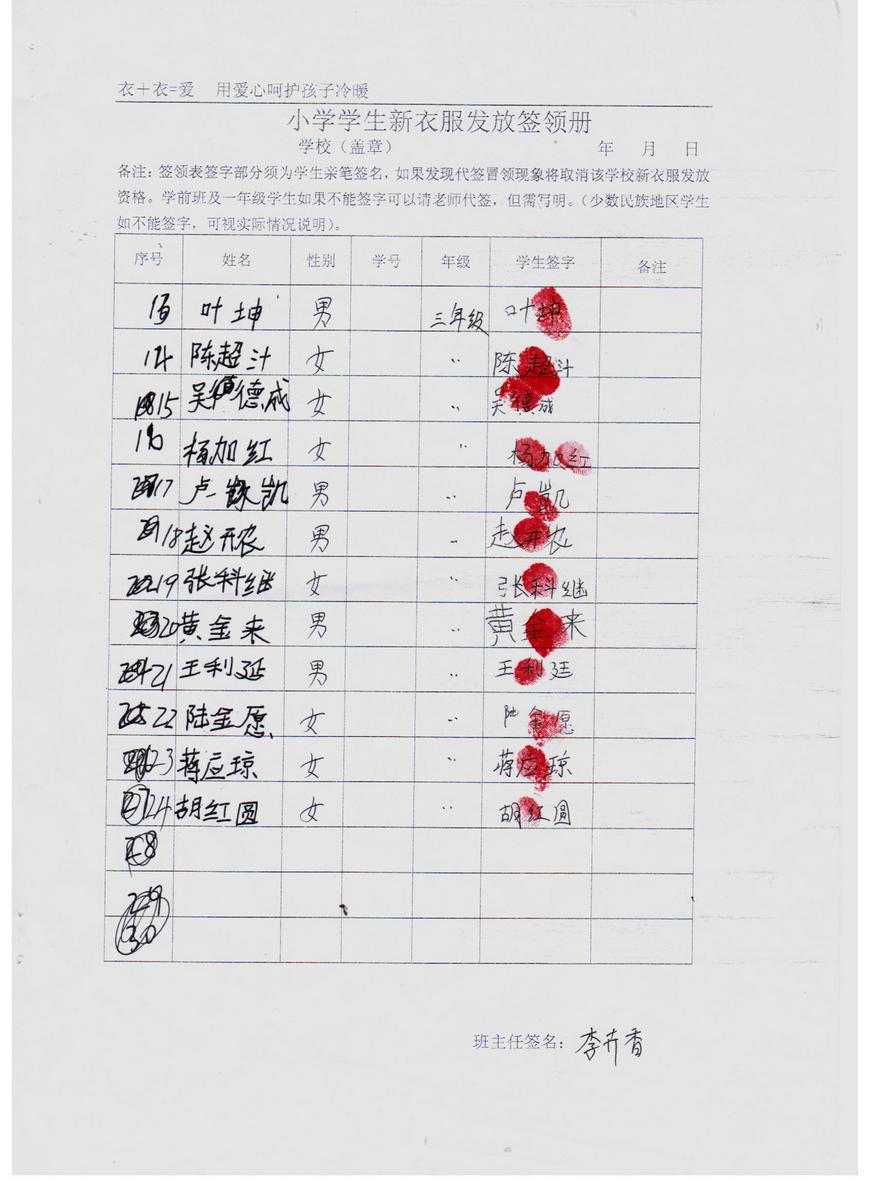 衣＋衣=爱 用爱心呵护孩子冷暖
小学学生新衣服发放签领册
学校（盖章） 年 月 日
备注：签领表签字部分须为学生亲笔签名，如果发现代签冒领现象将取消该学校新衣服发放
资格。学前班及一年级学生如果不能签字可以请老师代签，但需写明。（少数民族地区学生
如不能签字，可视实际情况说明）。
序号 姓名 性别 学号 年级 学生签字 备注
叶坤 男 三年级 叶坤
14 陈超汁 女 〃 陈超汁
15 吴德成 女 〃 吴德成
16 杨加红 女 〃 杨加红
17 卢凯 男 〃 卢凯
18 赵开农 男 〃 赵开农
19 张科继 女 〃 张科继
20 黄金来 男 〃 黄金来
21 王利延 男 〃 王利廷
22 陆金愿 女 〃 陆金愿
23 蒋应琼 女 〃 蒋应琼
24 胡红圆 女 〃 胡红圆
班主任签名：李卉香